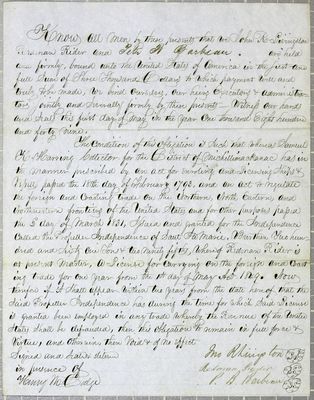 Know all Men by these presents that we John R. Livingston
Redman Rider and Peter B. Barbeau are held
and firmly bound unto the United States of America in the just and
full Sum of Three Thousand Dollars to which payment well and
truly to be made, We bind ourselves, our heirs Executors & administra-
tors, jointly and severally firmly by these presents Witness our hands
and Seals this first day of May in the year One thousand Eight hundred
and forty nine.
The Condition of this Obligation is Such that whereas Samuel
K. Haring Collector for the District of Michilimackinac has in
the manner prescribed by an act for Enrolling and Licensing Ships &
Vessels passed the 18th day of February 1793, and an act to regulate
the foreign and Coasting trade on the Northern, North Eastern and
Northwestern frontiers of the United States and for other purposes passed
the 2 day of March 1831, Issued and granted for the Independence
Called the Propeller Independence of Saut Ste Marie,
as present Master, a License for carrying on the foreign and Coast
ing trade for One year from the 1st day of May AD 1849. Now
therefore if it Shall appear within One year from the date hereof that the
Said Propeller Independence has during the time for which Said License
is granted been employed in any trade whereby the Revenue of the United
States shall be defrauded, then this Obligation to remain in full force &
Virtue, and otherwise, then Void & of no Effect
Signed and Sealed & deliver
in presence of
Jno R Livingston
Redman Ryder
P. B. Barbeau
Henry M. Dodge